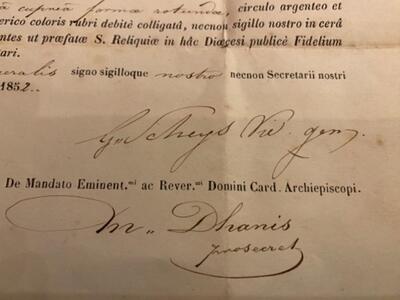 cupreâ formæ rotundæ, circulo argenteo et
erico coloris rubri debitè colligatâ, necnon sigillo nostro in cerâ
entes ut præfatæ S. Reliquiæ in hâc Diœcesi publicè Fidelium
ari.
eralis signo sigilloque nostro necnon Secretarii nostri
1852..
Scheys Vic. gen.
De Mandato Eminent.mi ac Rever.mi Domini Card. Archiepiscopi.
m,, Dhanis
prosecret